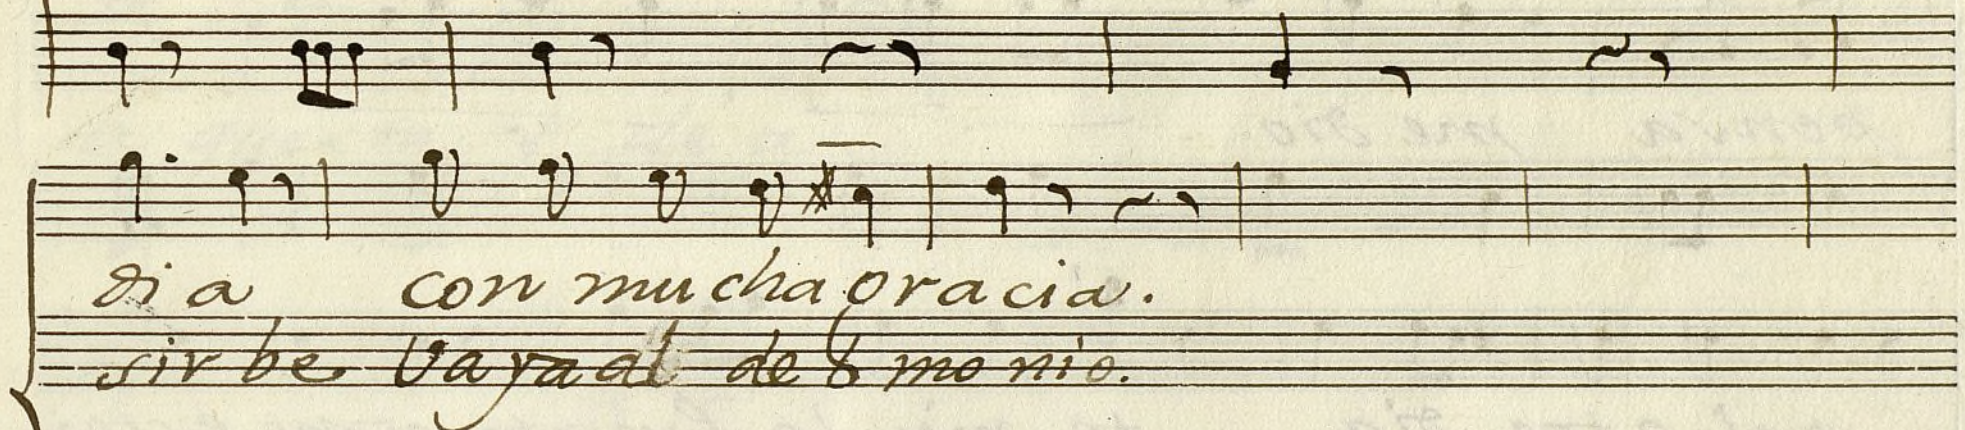 dia con mucha gracia.
sirbe Vaya al demonio.